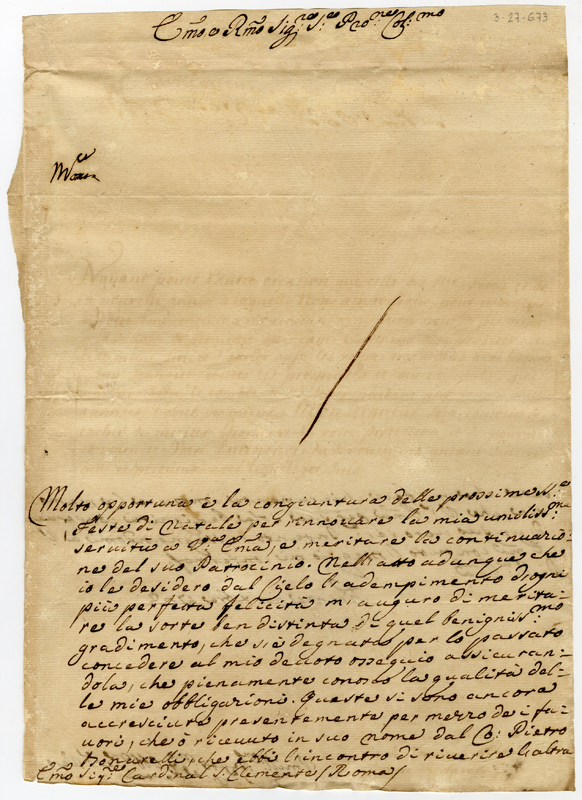 3-27-673
Emo e Rmo Sig.re S.re Pro.ne Col.mo
Molto opportuna è la congiuntura delle prossime SS.e
Feste di Natale per rinnovare la mia umiliss.ma
servitù a V.ra Em.a, e meritare la continuatio-
ne del suo Patrocinio. Nell'atto adunque che
io le desidero dal Cielo l'adempimento d'ogni
più perfetta felicità mi auguro di merita-
re la sorte ben distinta di quel benigniss.mo
gradimento, che s'è degnata per lo passato
concedere al mio devoto ossequio assicuran-
dola, che pienamente conosco la qualità del-
le mie obbligazioni. Queste si sono ancora
accresciute presentemente per mezzo de i fa-
uori, che ò riceuuto in suo nome dal Pietro
Bonarelli, che ebbi l'incontro di riverire l'altra
Emo Sig.re Cardinal S. Clemente / Roma /